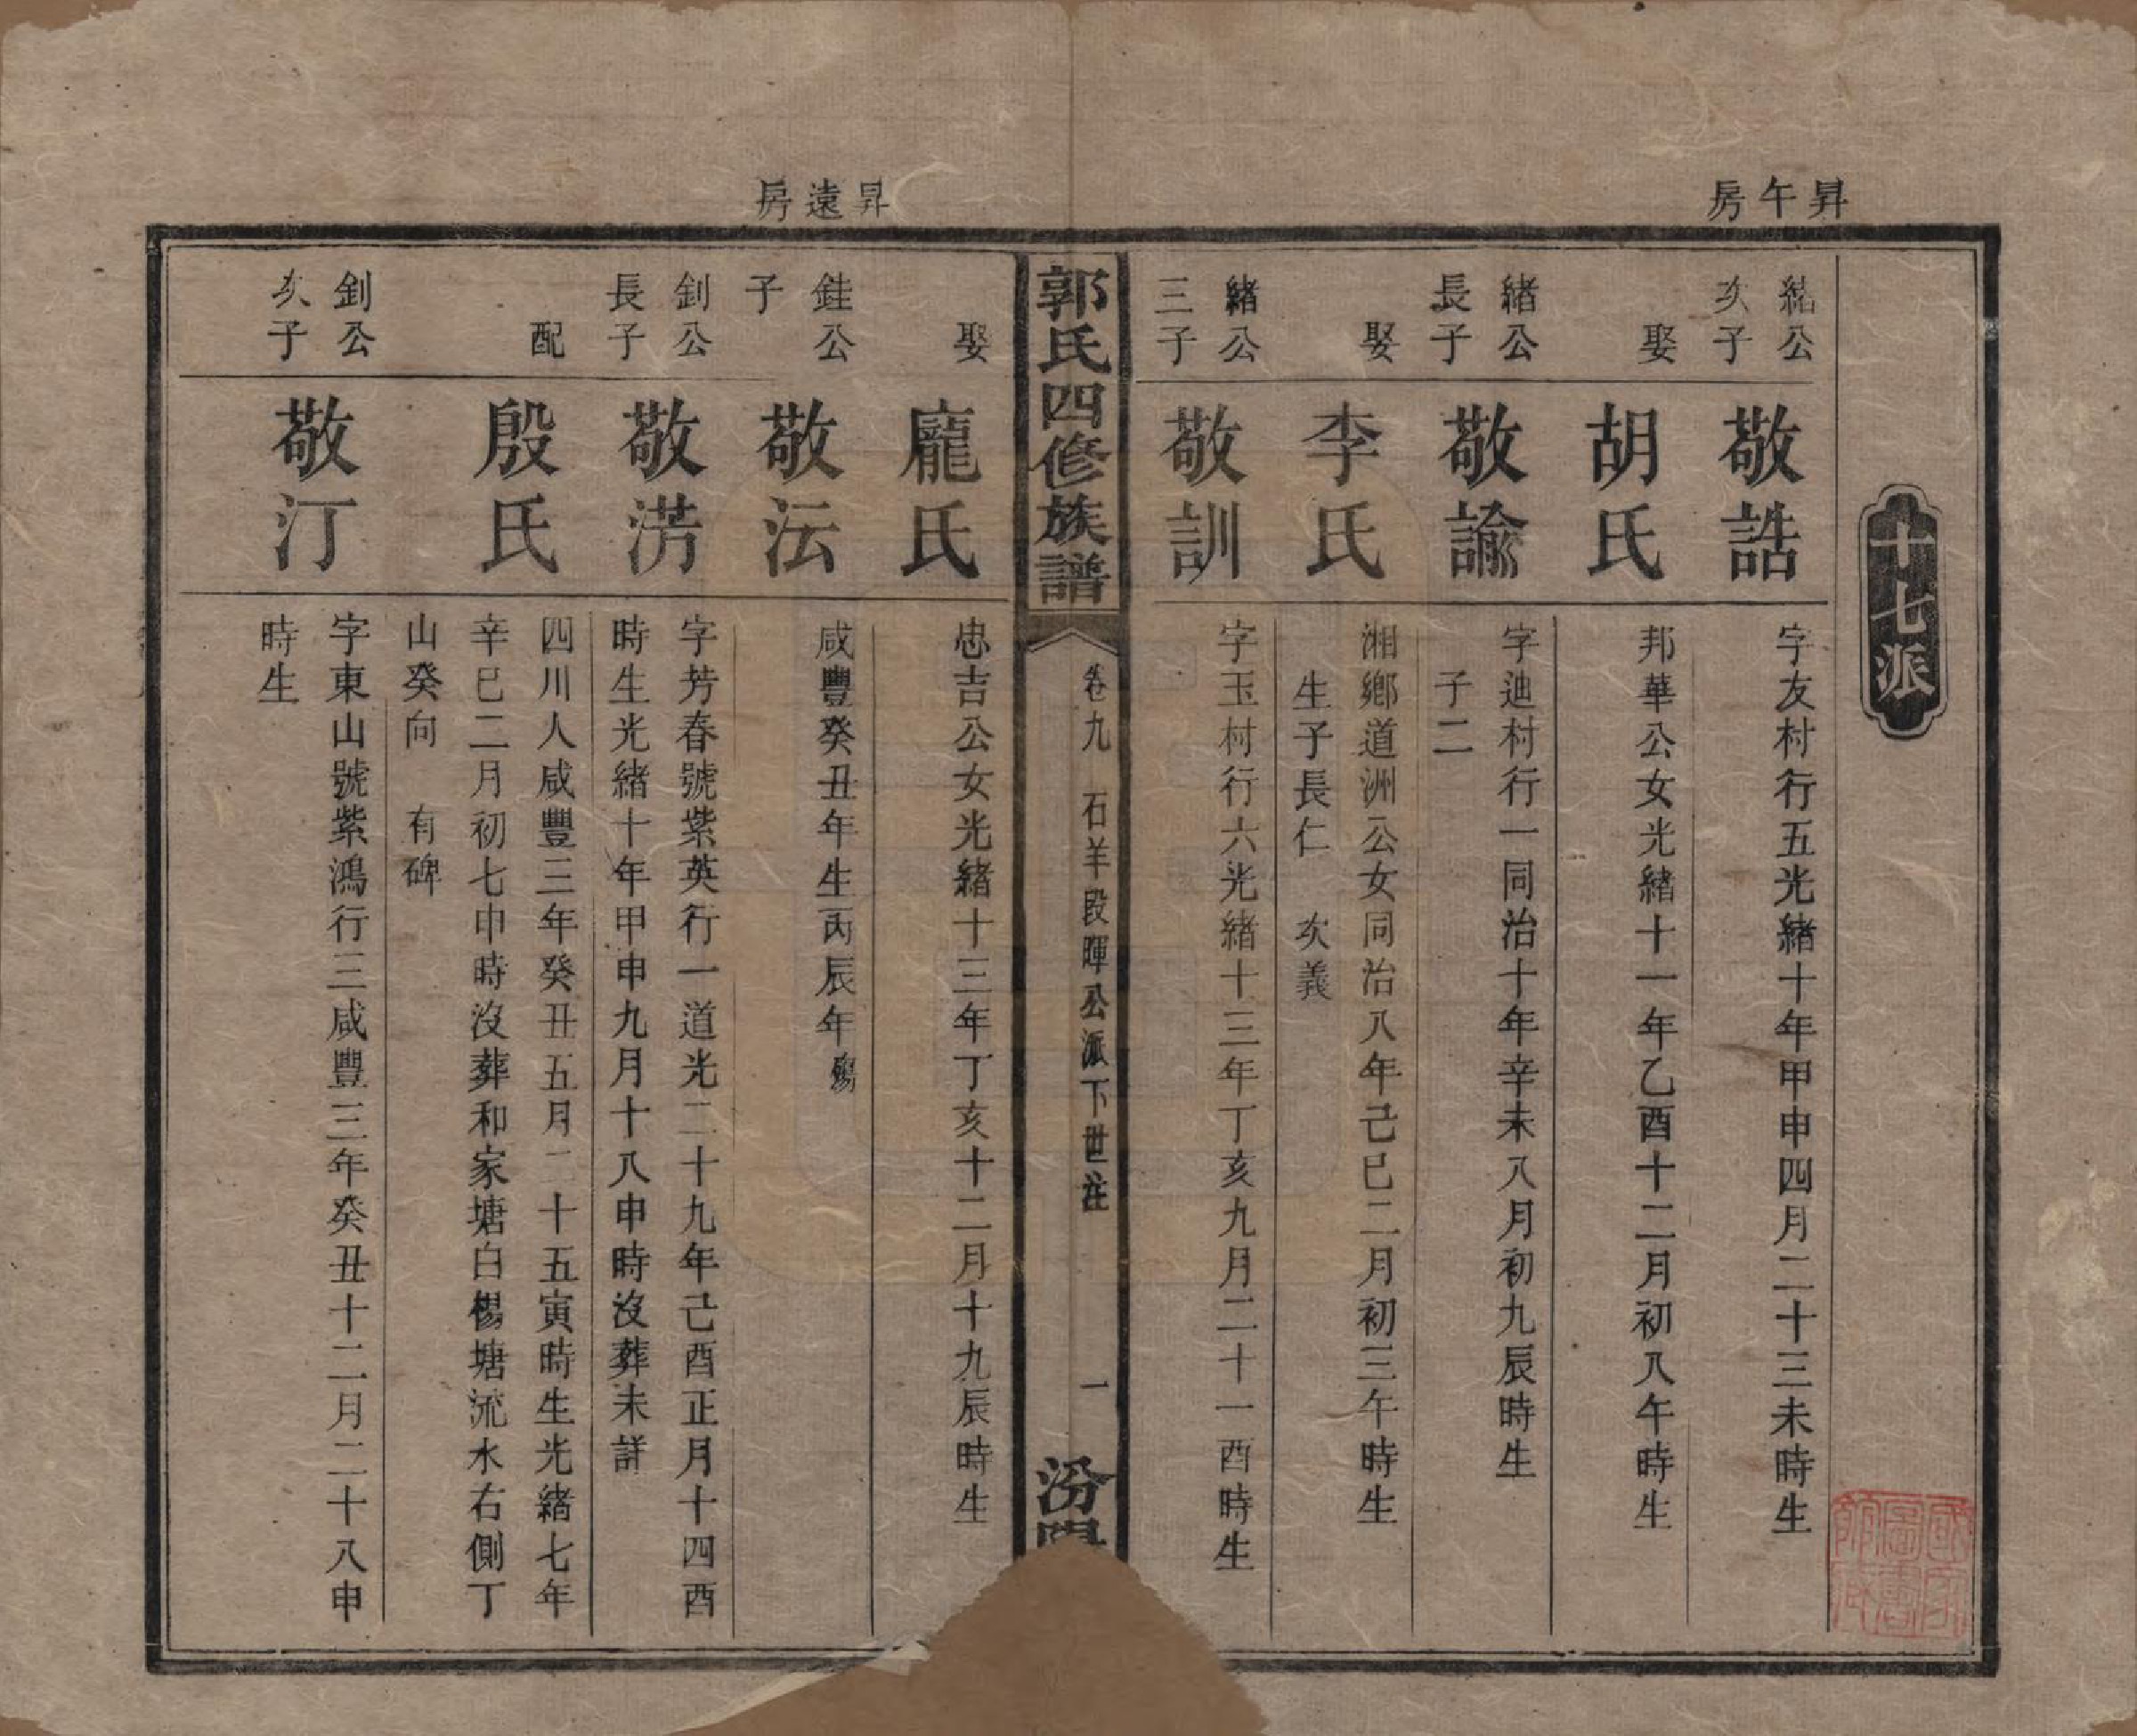 昇午房
十七派
緒公
次子
敬誥
字友村行五光緒十年甲申四月二十三未時生
娶
胡氏
邦華公女光緒十一年乙酉十二月初八午時生
緒公
長子
敬諭
字迪村行一同治十年辛未八月初九辰時生
子二
娶
李氏
湘鄉道洲公女同治八年己巳二月初三午時生
生子長仁 次義
緒公
三子
敬訓
字玉村行六光緒十三年丁亥九月二十一酉時生
郭氏四修族譜
卷九 石羊段暉公派下世注
一
汾陽
昇遠房
娶
龐氏
忠吉公女光緒十三年丁亥十二月十九辰時生
銈公
子
敬沄
咸豐癸丑年生丙辰年殤
釗公
長子
敬淓
字芳春號紫英行一道光二十九年己酉正月十四酉
時生光緒十年甲申九月十八申時沒葬未詳
配
殷氏
四川人咸豐三年癸丑五月二十五寅時生光緒七年
辛巳二月初七申時沒葬和家塘白楊塘流水右側丁
山癸向 有碑
釗公
次子
敬汀
字東山號紫鴻行三咸豐三年癸丑十二月二十八申
時生